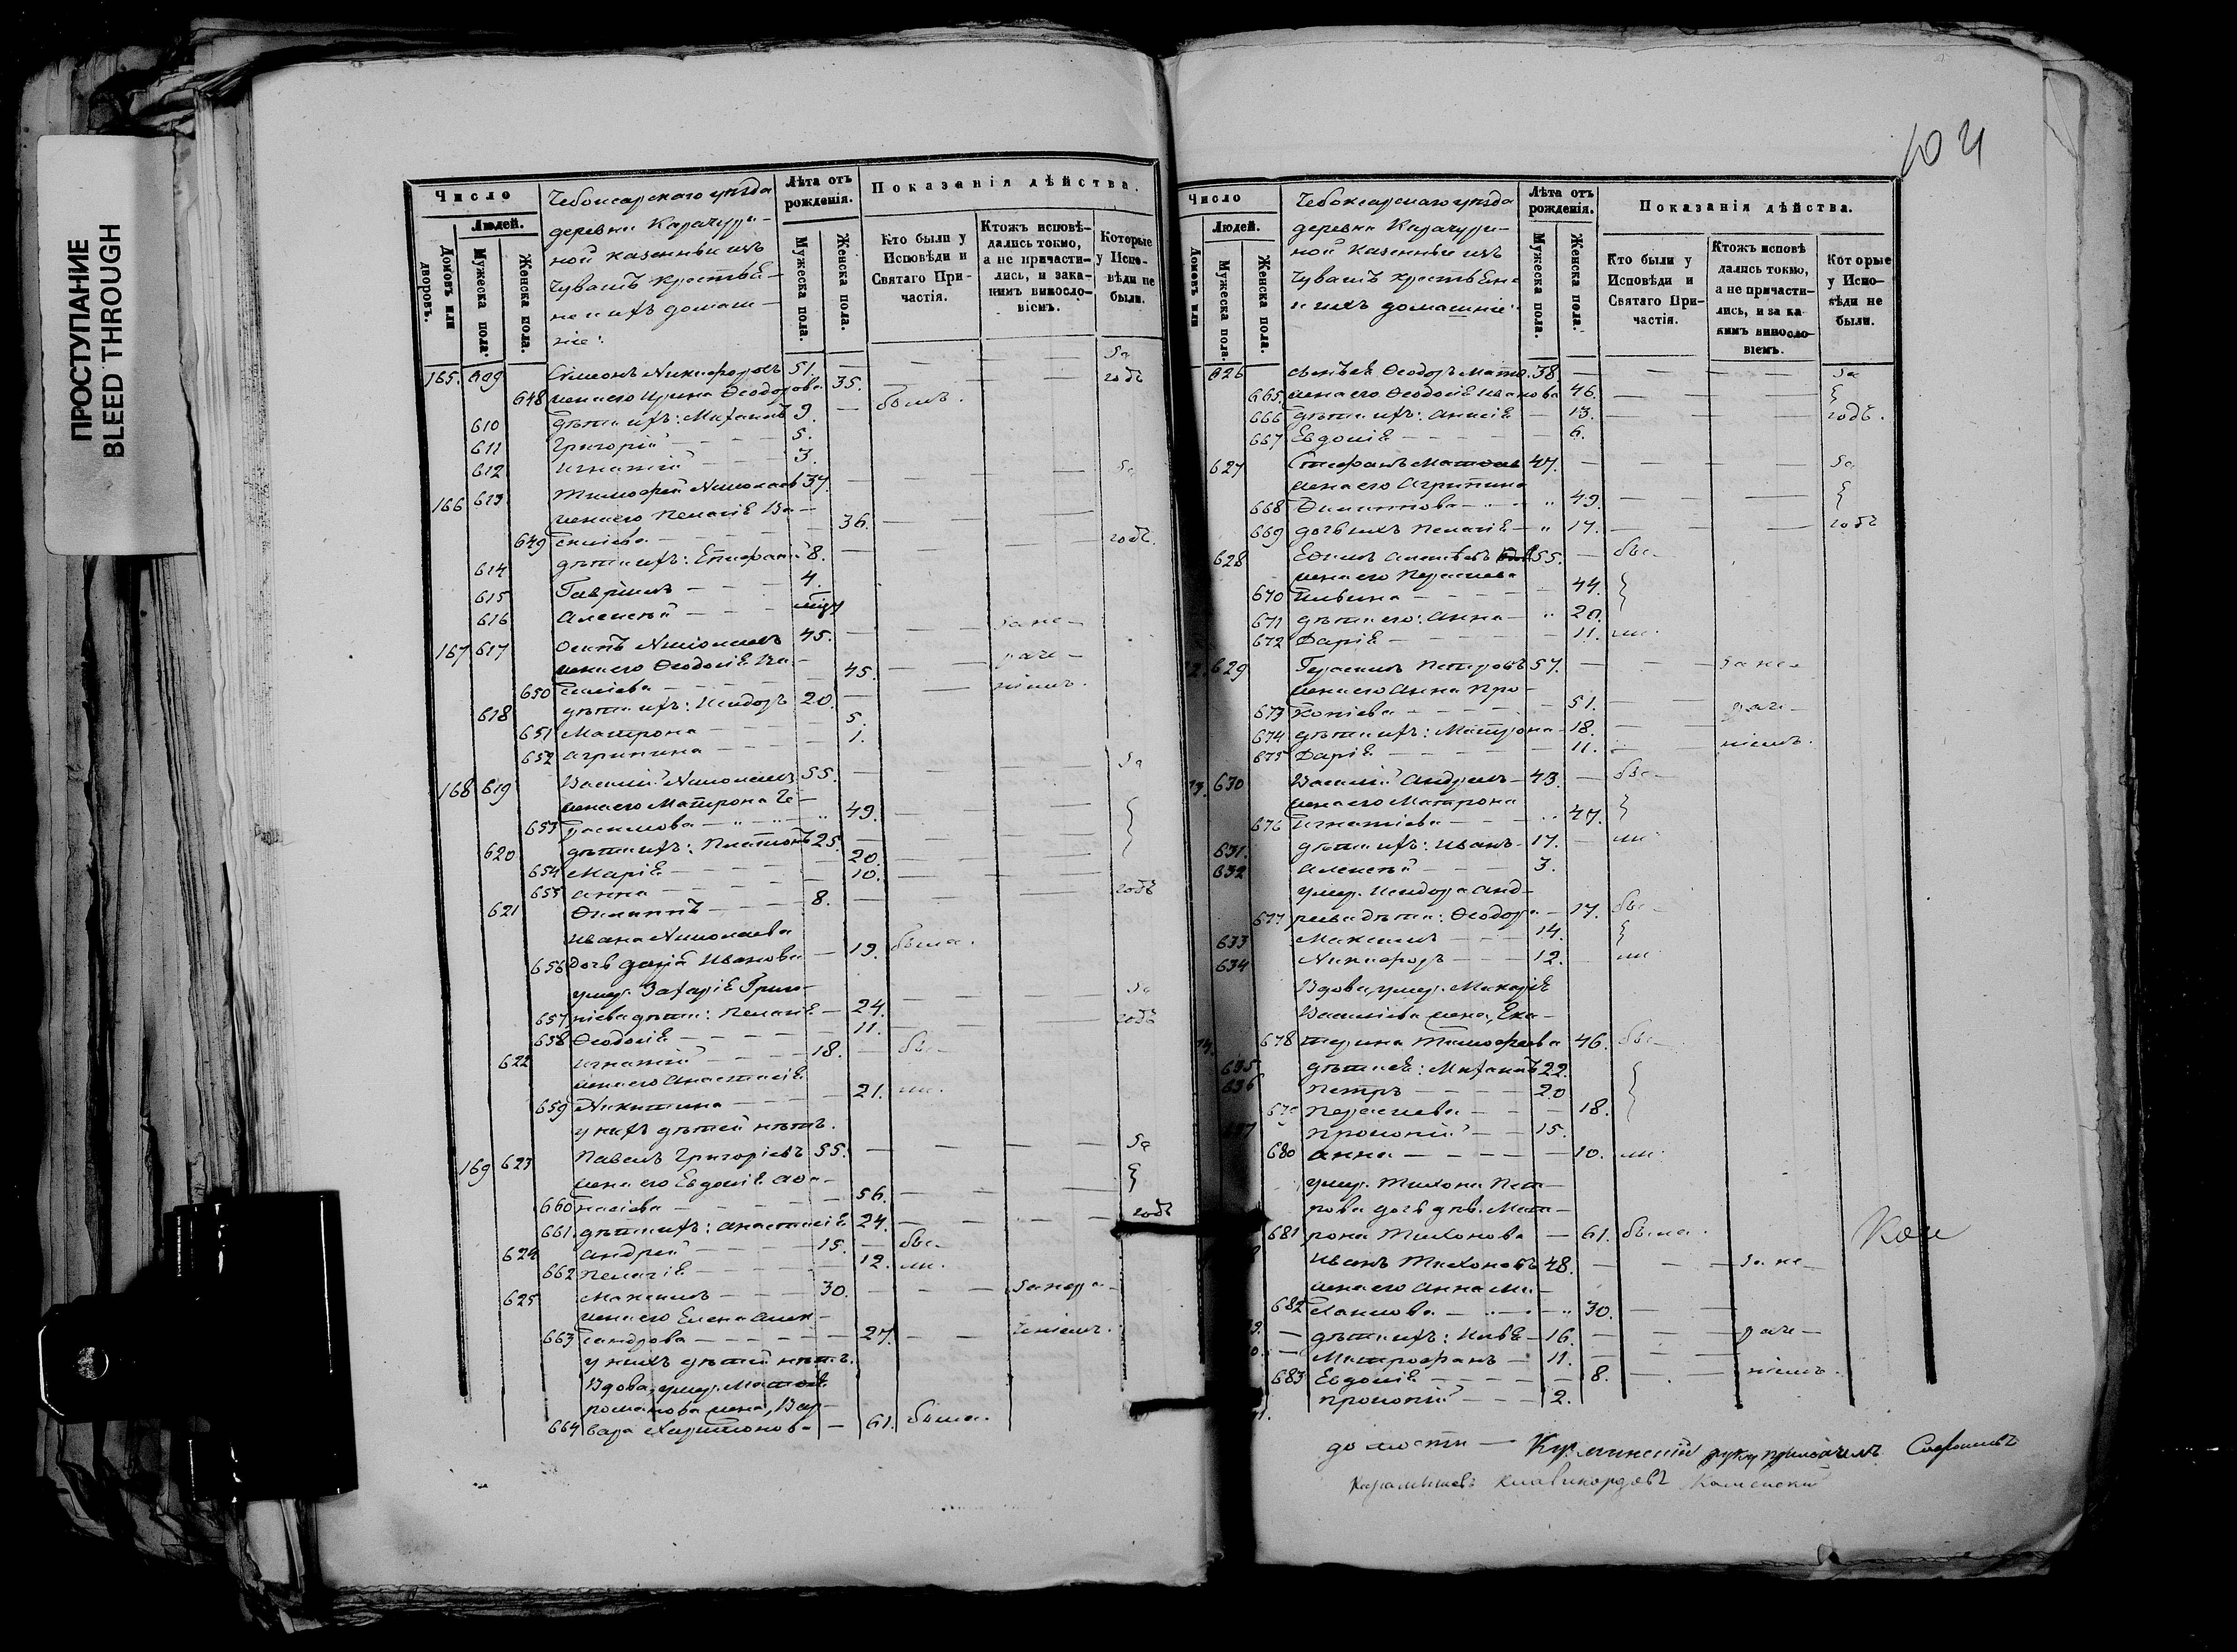 ПРОСТУПАНИЕ
BLEED THROUGH
Число
Людей.
Домовъ или дворовъ.
Мужеска пола.
Женска пола.
Чебоксарскаго уѣзда
деревни Карачури-
ной казенные изъ
Чувашъ крестьѣ-
не и ихъ домаш-
ніе:
Лѣта отъ рожденія.
Мужеска пола.
Женска пола.
Показанія дѣйства.
Кто были у Исповѣди и Святаго Причастія.
Ктожъ исповѣдались токмо, а не причастились, и за какимъ винословіемъ.
Которые у Исповѣди не были.
165. 609 Симеонъ Никифоровъ 51. — — — за
648 жена его Ирина Ѳеодорова 35. — — — годъ
610 дѣти ихъ: Михаилъ 9. — былъ.
611 Григорій — — — 5.
612 Игнатій — — — 3.
166 613 Тимофей Николаевъ 37. — — — за
жена его Пелагіѣ Ва-
649 силіева — — — 36. — — —
614 дѣти ихъ: Епифаній 8. — — — годъ.
615 Гавріилъ — — — 4.
616 Алексѣй — — —
167 617 Осипъ Николаевъ 45. — — за не-
жена его Ѳеодосіѣ Ва-
650 силіева — — — 45. — — раче-
618 дѣти ихъ: Исидоръ 20. — — ніемъ.
651 Матрона — — — 5.
652 Агрипина — — — 1.
168 619 Василій Николаевъ 55. — — — за
жена его Матрона Ге-
653 расимова — — — 49. — — —
620 дѣти ихъ: Платонъ 25. — — —
654 Маріѣ — — — 20. — — —
655 Анна — — — 10. — — —
621 Филиппъ — — — 8. — — — годъ
Ивана Николаева
656 дочь Дарія Иванова — 19. была.
умер. Захаріѣ Григо-
657 ріева дѣти: Пелагіѣ — 24. — — — за
658 Ѳеодосіѣ — — — 11. — — — годъ
622 Игнатій — — — 18. — бы-
жена его Анастасіѣ
659 Никитина — — — 21. ли.
у нихъ дѣтей нѣтъ.
169 623 Павелъ Григорьевъ 55. — — — за
жена его Евдокіѣ Аѳа-
660 насіева — — — 56. — — —
661. дѣти ихъ: Анастасіѣ 24. — — — годъ
624 Андрей — — — 15. — бы-
662 Пелагіѣ — — — 12. ли.
625 Максимъ — — — 30. — — за нера-
жена его Елена Алек-
663 сандрова — — — 27. — — ченіемъ.
у нихъ дѣтей нѣтъ.
Вдова, умер. Матвѣя
романова жена, Вар-
664 вара Харитонова — 61. была.
104
Число
Людей.
Домовъ или
Мужеска пола.
Женска пола.
Чебоксарскаго уѣзда
деревни Карачури-
ной казенные изъ
Чувашъ крестьѣне
и ихъ домашніе:
Лѣта отъ рожденія.
Мужеска пола.
Женска пола.
Показанія дѣйства.
Кто были у Исповѣди и Святаго Причастія.
Ктожъ исповѣдались токмо, а не причастились, и за какимъ винословіемъ.
Которые у Исповѣди не были.
626 Ѳеодоръ 38 — — — за
665. жена его Ѳеодосіѣ Иванова 46. — — —
666 дѣти ихъ: Анисіѣ — 13. — — — годъ.
667 Евдокіѣ — — — 6.
627 Стефанъ 47. — — — за
жена его Агрипина
668 Филиппова — — — 49. — — —
669 дочь ихъ Пелагіѣ — 17. — — — годъ
628 Ефимъ Алексѣевъ 55. — бы-
жена его
670 44.
671 дѣти его: Анна — 20.
672 Даріѣ — — — 11. ли.
629 Герасимъ Петровъ 57. — — за не-
жена его Анна Про-
673 копіева — — — 51. — — раче-
674 дѣти ихъ: Матрона — 18. —
675 Даріѣ — — — 11. — ніемъ.
630 Василій Андреевъ — 43. — бы-
жена его Матрона
676 Игнатіева — — — 47.
631. дѣти ихъ: Иванъ — 17. — ли
632 Алексѣй — — — 3.
умер. Исидора Анд-
677 реева дѣти: Ѳеодора — 17. бы-
633 Максимъ — — — 14.
634 Никифоръ — — — 12. ли
Вдова, умер. Макаріѣ
Василіева жена, Ека-
678 терина Тимофеева 46. бы-
635 дѣти еѣ: Михаилъ 22.
636 Петръ — — — 20
Параскева — — — 18.
Прокопій — — — 15.
680 Анна — — — 10. ли.
умер. Тихона Пет-
рова дочь дѣв. Мат-
681 рона Тихонова — 61. была.
Иванъ Тихоновъ 48. — — за не-
жена его Анна
682 30. — —
дѣти ихъ: — 16. — — раче-
Митрофанъ — 11. — —
683 Евдокіѣ — — — 8. — ніемъ.
Прокопій — — — 2.
до мости — руку приложилъ
Каменскій